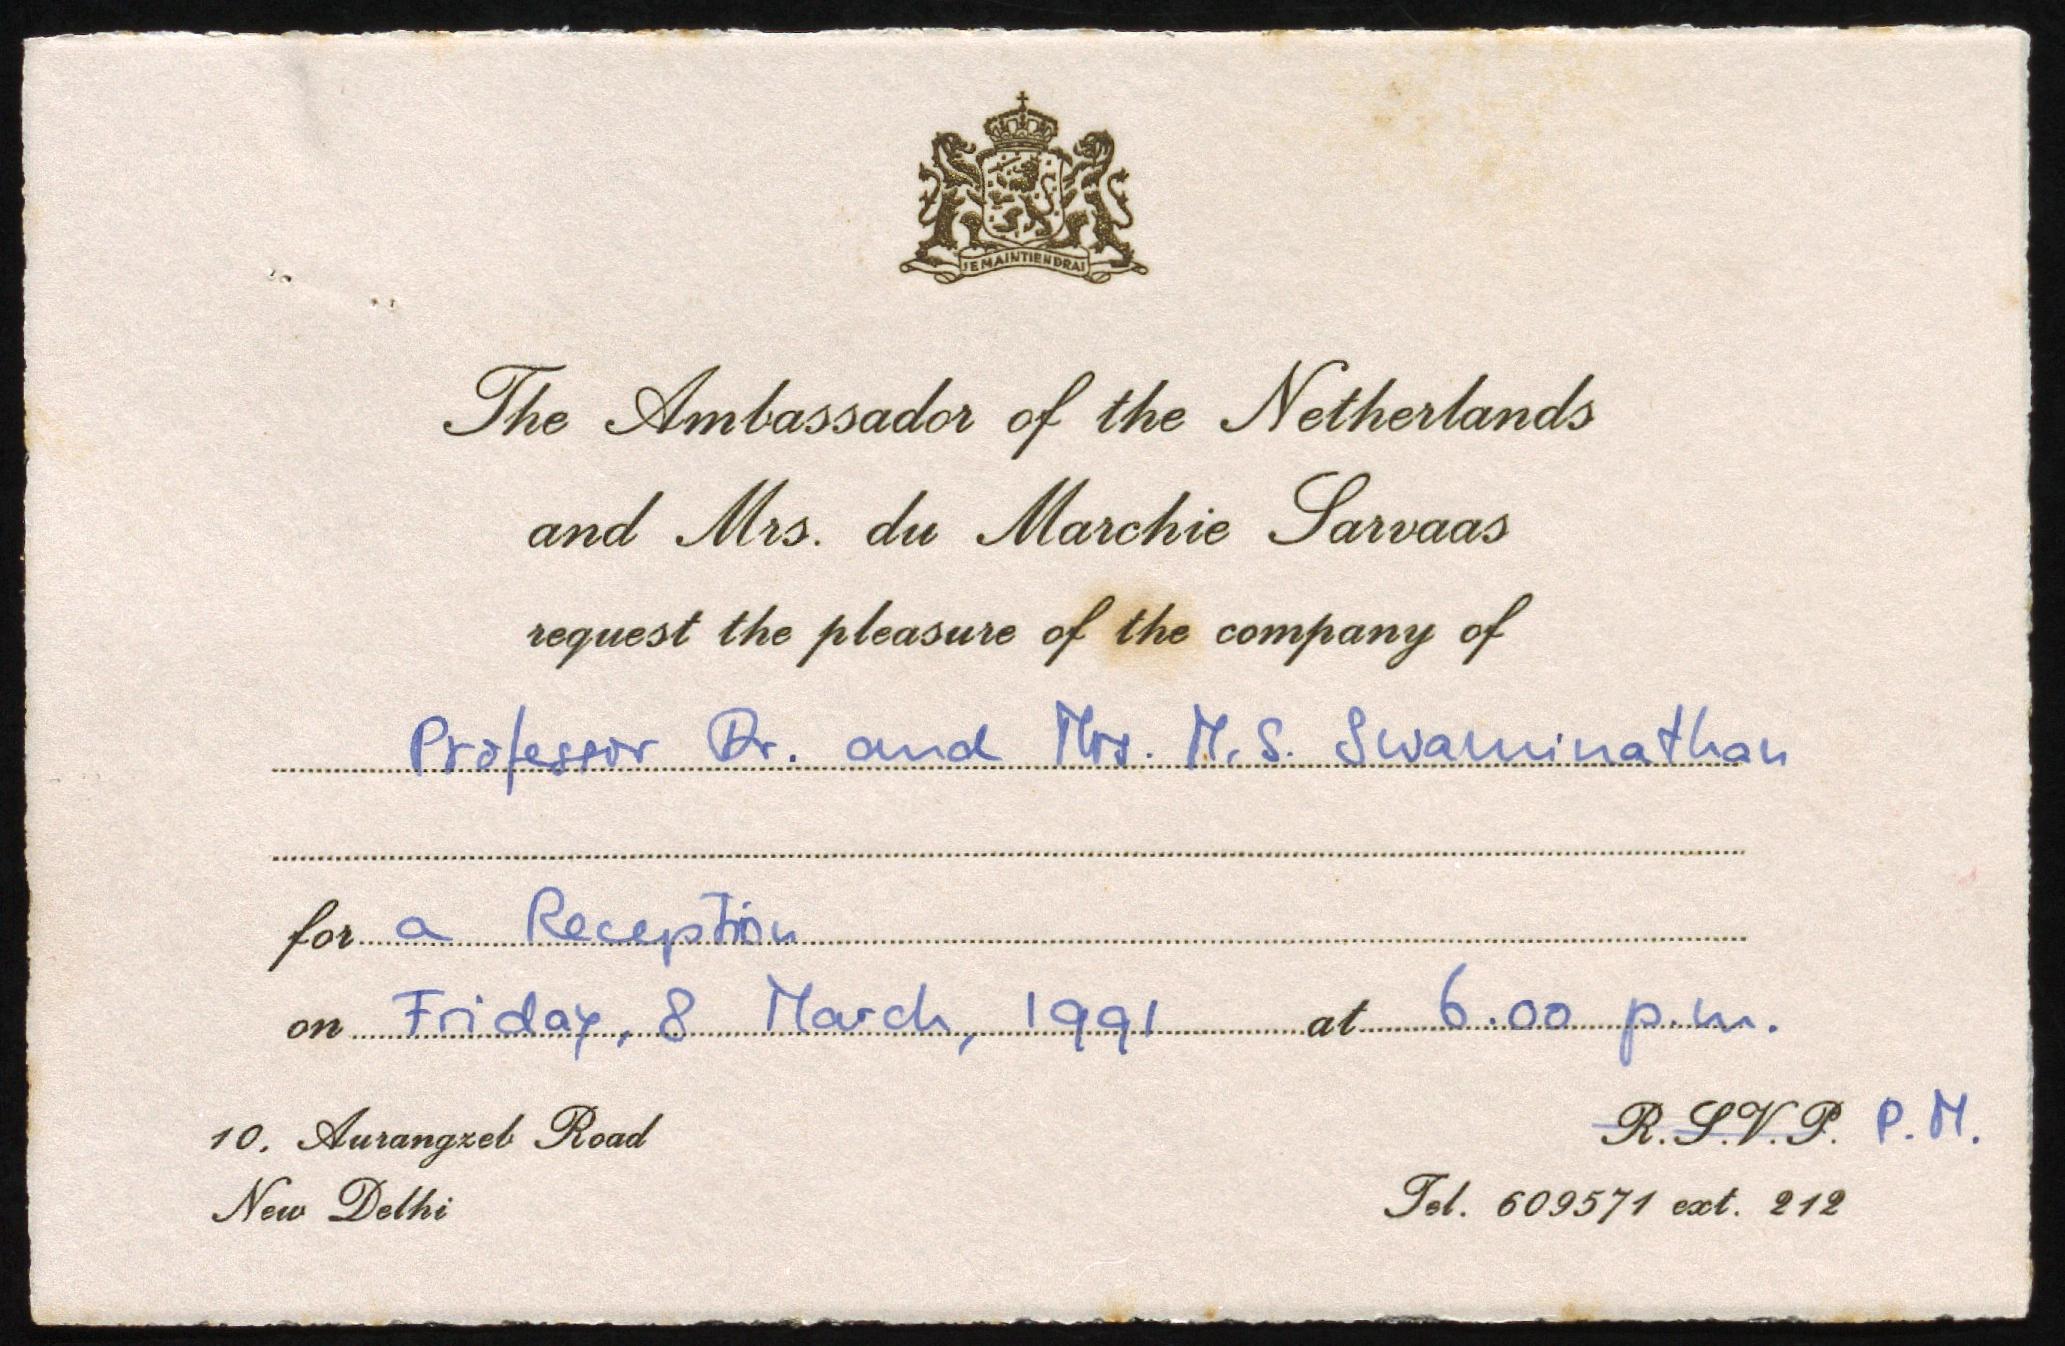 JE MAINTIENDRAI
The Ambassador of the Netherlands
and Mrs. du Marchie Sarvaas
request the pleasure of the company of
Professor Dr. and Mrs. M.S. Swaminathan
for a Reception
on Friday, 8 March, 1991 at 6.00 p.m.
10, Aurangzeb Road R.S.V.P. P.M.
New Delhi Tel. 609571 ext. 212